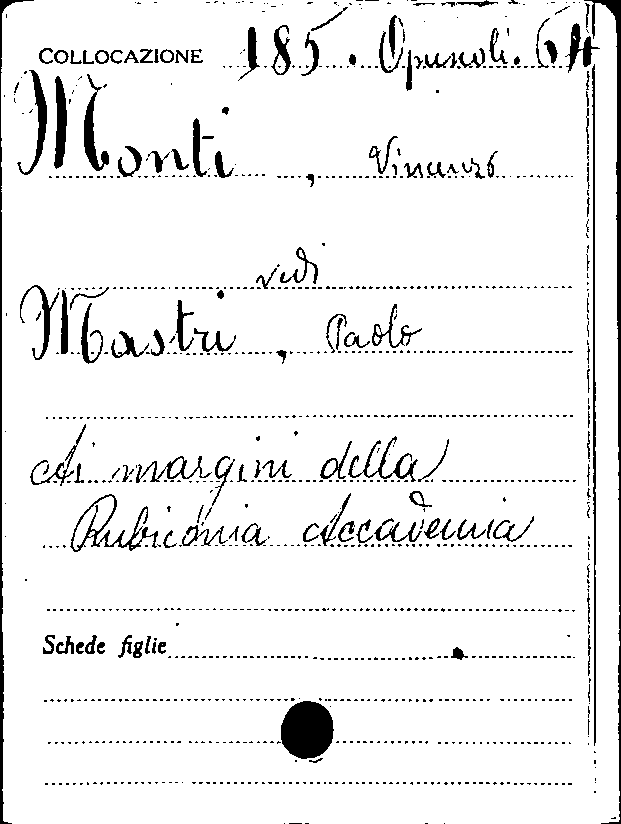 COLLOCAZIONE 185. Opuscoli. 64
Monti, Vincenzo
vedi
Mastri, Paolo
Ai margini della
Rubiconia Accademia
Schede figlie